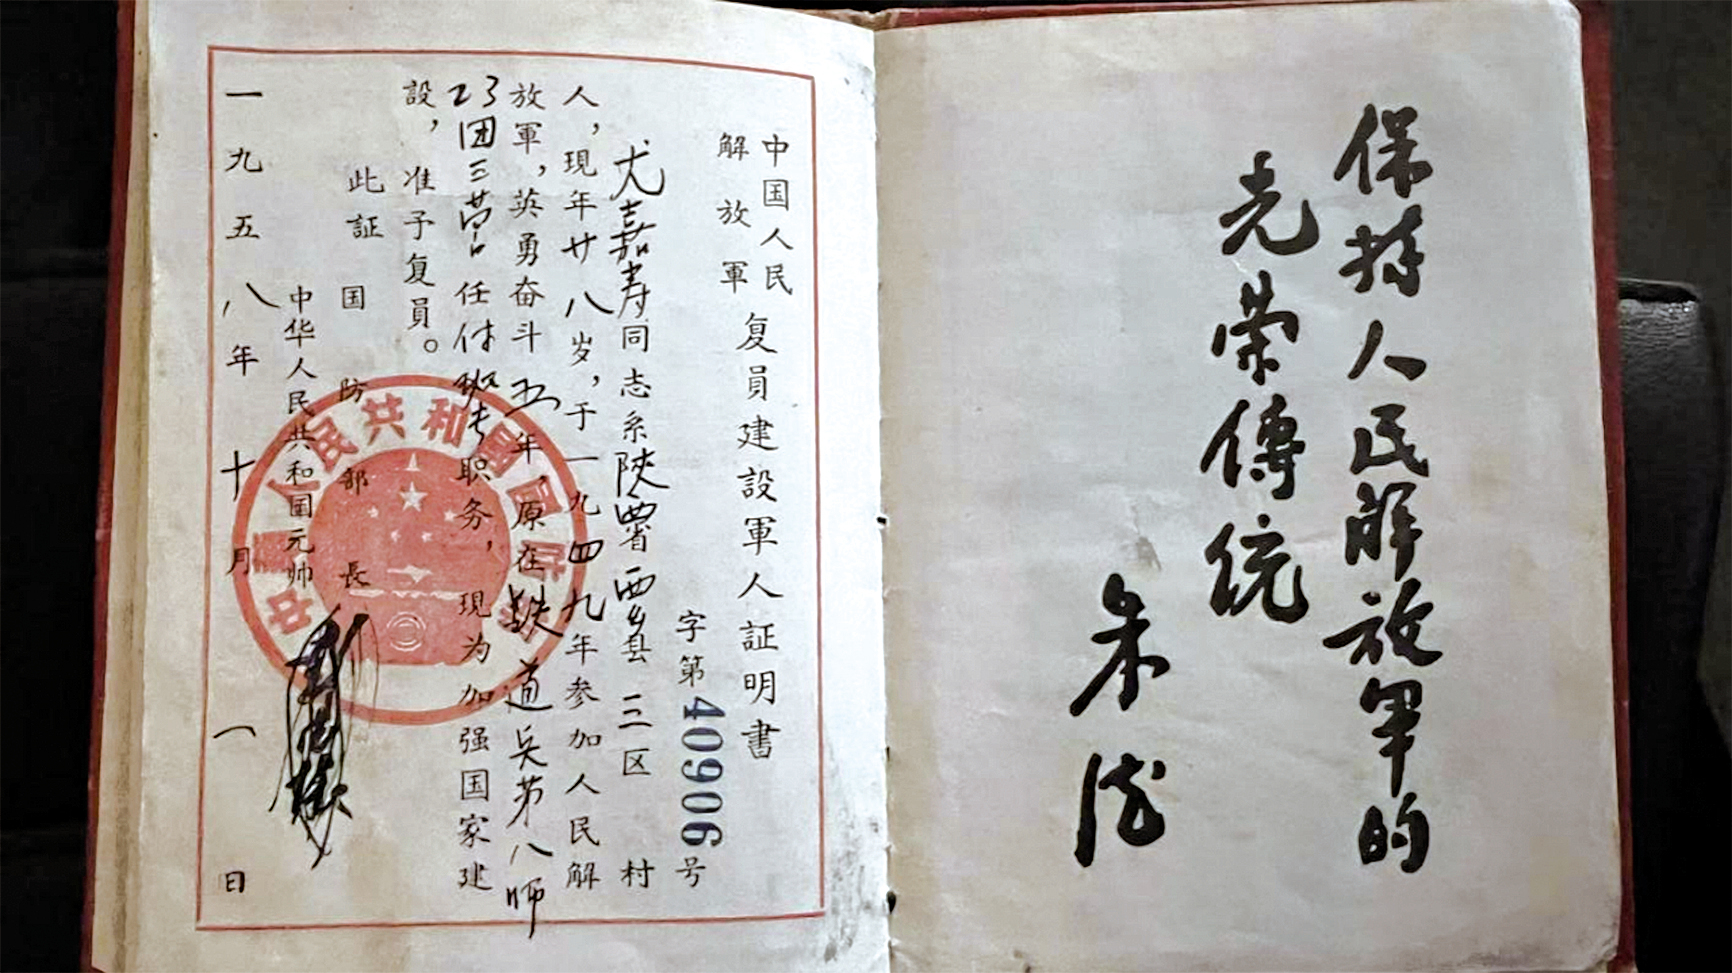 保持人民解放軍的
光荣傳統
朱德
中国人民
解放軍
复員建設軍人証明書
字第40906号
尤嘉寿同志系陝西省西乡县三区村
人，現年廿八岁，于一九四九年参加人民解
放軍，英勇奋斗五年，原在鉄道兵第八师
23团三营任付班长职务，現为加强国家建
設，准予复員。
此証
国防部長
中华人民共和国元帅
一九五八年十月一日
中華人民共和國國防部